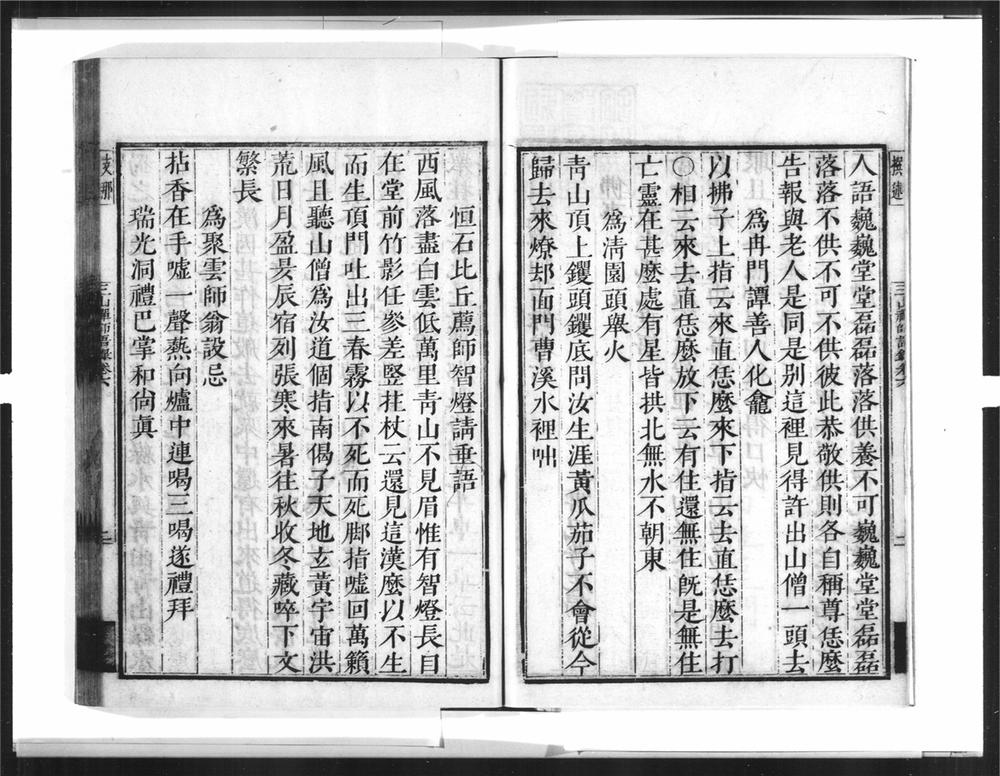 人語巍巍堂堂磊磊落落供養不可巍巍堂堂磊磊
落落不供不可不供彼此恭敬供則各自稱尊恁麼
告報與老人是同是别這裡見得許出山僧一頭去
爲冉門譚善人化龕
以拂子上指云來直恁麼來下指云去直恁麼去打
〇相云來去直恁麼放下云有住還無住旣是無住
亡靈在甚麼處有星皆拱北無水不朝東
爲淸園頭舉火
靑山頂上钁頭钁底問汝生涯黃瓜茄子不會從今
歸去來燎却面門曹溪水裡咄
三山禪師語錄卷六
二
恒石比丘薦師智燈請垂語
西風落盡白雲低萬里靑山不見眉惟有智燈長日
在堂前竹影任參差竪拄杖云還見這漢麼以不生
而生頂門吐出三春霧以不死而死脚指嘘回萬籟
風且聽山僧爲汝道個指南偈子天地玄黃宇宙洪
荒日月盈昃辰宿列張寒來暑往秋收冬藏啐下文
繁長
爲聚雲師翁設忌
拈香在手嘘一聲爇向爐中連喝三喝遂禮拜
瑞光洞禮巴掌和尙眞
三山禪師語錄卷六